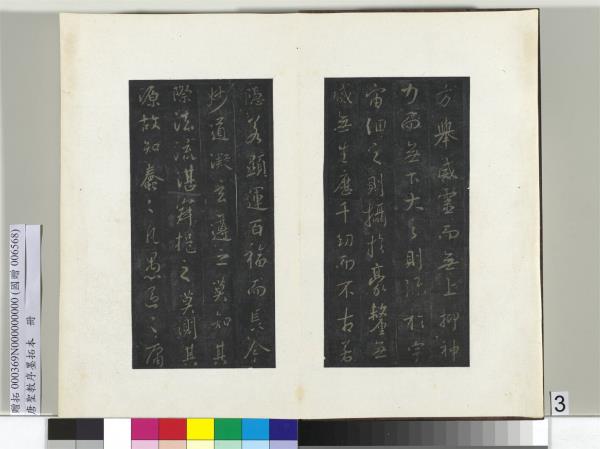 方舉威靈而無上抑神
力而無下大之則弥於宇
宙細之則攝於豪釐無
滅無生歷千劫而不古若
隱若顯運百福而長今
妙道凝玄遵之莫知其
際法流湛寂挹之莫測其
源故知蠢々凡愚區々庸
贈拓 000369N000000000 (國贈 006568)
唐聖教序墨拓本 冊
3